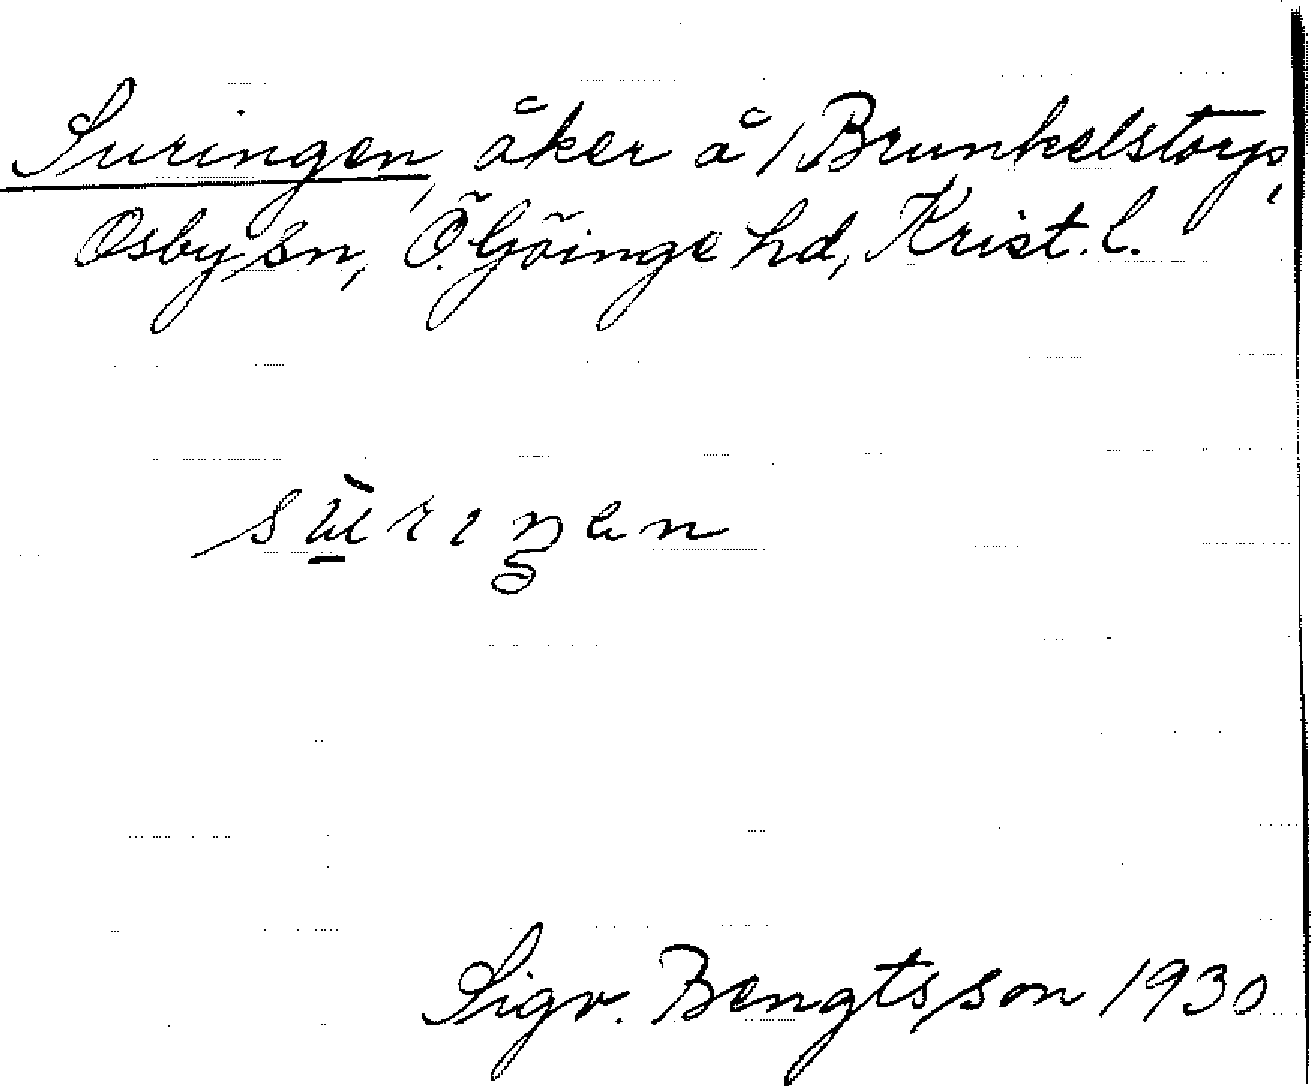 Suringen, åker å 1 Brunkelstorp,
Osby sn, Ö. Göinge hd, Krist. l.
sù̱riŋen
Sigv. Bengtsson 1930